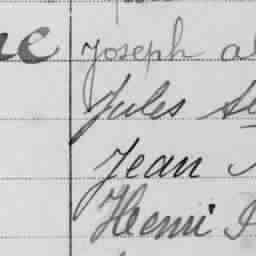 ne Joseph al
Jules
Jean
Henri